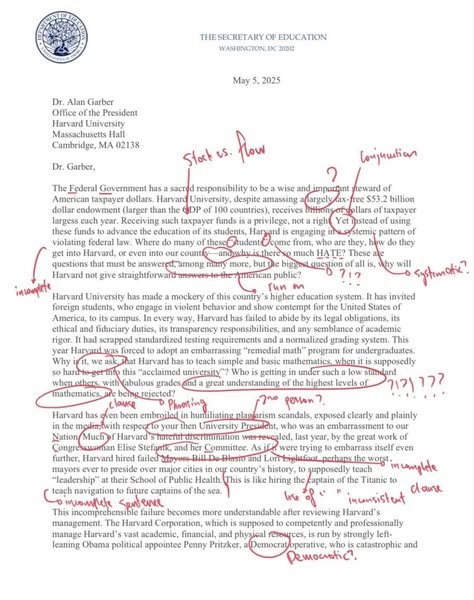 THE SECRETARY OF EDUCATION
WASHINGTON, DC 20202
May 5, 2025
Dr. Alan Garber
Office of the President
Harvard University
Massachusetts Hall
Cambridge, MA 02138
Stock vs. flow
Conjunction
Dr. Garber,
?
The Federal Government has a sacred responsibility to be a wise and important steward of
American taxpayer dollars. Harvard University, despite amassing a largely tax-free $53.2 billion
dollar endowment (larger than the GDP of 100 countries), receives billions of dollars of taxpayer
largess each year. Receiving such taxpayer funds is a privilege, not a right. Yet instead of
using these funds to advance the education of its students, Harvard is engaging in a systemic pattern of
violating federal law. Where do many of these "students" come from, who are they, how do they
get into Harvard, or even into our country—and why is there so much HATE? These are
questions that must be answered, among many more, but the biggest question of all is, why will
Harvard not give straightforward answers to the American public?
?!?
systematic?
incomplete
run on
Harvard University has made a mockery of this country's higher education system. It has invited
foreign students, who engage in violent behavior and show contempt for the United States of
America, to its campus. In every way, Harvard has failed to abide by its legal obligations, its
ethical and fiduciary duties, its transparency responsibilities, and any semblance of academic
rigor. It had scrapped standardized testing requirements and a normalized grading system. This
year Harvard was forced to adopt an embarrassing "remedial math" program for undergraduates.
Why is it, we ask, that Harvard has to teach simple and basic mathematics, when it is supposedly
so hard to get into this "acclaimed university"? Who is getting in under such a low standard
when others, with fabulous grades and a great understanding of the highest levels of
mathematics, are being rejected?
?!?!???
clause
Phrasing
no person?
Harvard has even been embroiled in humiliating plagiarism scandals, exposed clearly and plainly
in the media, with respect to your then University President, who was an embarrassment to our
Nation. Much of Harvard's hateful discrimination was revealed, last year, by the great work of
Congresswoman Elise Stefanik, and her Committee. As if it were trying to embarrass itself even
further, Harvard hired failed Mayors Bill De Blasio and Lori Lightfoot, perhaps the worst
mayors ever to preside over major cities in our country's history, to supposedly teach
"leadership" at their School of Public Health. This is like hiring the captain of the Titanic to
teach navigation to future captains of the sea.
incomplete
clause
incomplete sentence
use of " " inconsistent
This incomprehensible failure becomes more understandable after reviewing Harvard's
management. The Harvard Corporation, which is supposed to competently and professionally
manage Harvard's vast academic, financial, and physical resources, is run by strongly left-
leaning Obama political appointee Penny Pritzker, a Democrat operative, who is catastrophic and
Democratic?